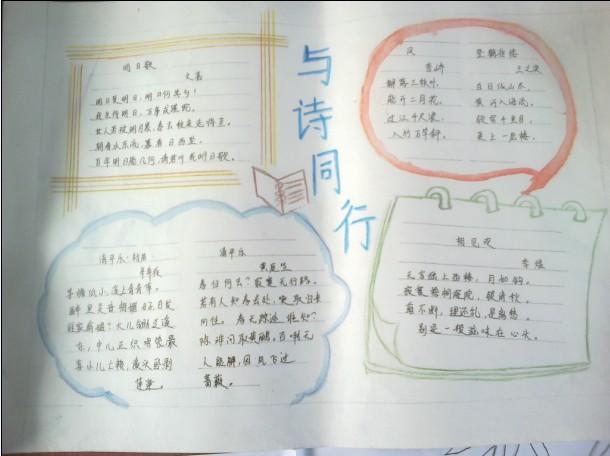 与诗同行
明日歌
文嘉
明日复明日，明日何其多！
我生待明日，万事成蹉跎。
世人若被明日累，春去秋来老将至。
朝看水东流，暮看日西坠。
百年明日能几何，请君听我明日歌。
风
李峤
解落三秋叶，
能开二月花。
过江千尺浪，
入竹万竿斜。
登鹳雀楼
王之涣
白日依山尽，
黄河入海流。
欲穷千里目，
更上一层楼。
清平乐·村居
辛弃疾
茅檐低小，溪上青青草。
醉里吴音相媚好，白发
谁家翁媪？大儿锄豆溪
东，中儿正织鸡笼。最
喜小儿亡赖，溪头卧剥
莲蓬。
清平乐
黄庭坚
春归何去？寂寞无行路。
若有人知春去处，唤取归来
同住。春无踪迹谁知？
除非问取黄鹂，百啭无
人能解，因风飞过
蔷薇。
相见欢
李煜
无言独上西楼，月如钩。
寂寞梧桐深院，锁清秋。
剪不断，理还乱，是离愁。
别是一般滋味在心头。